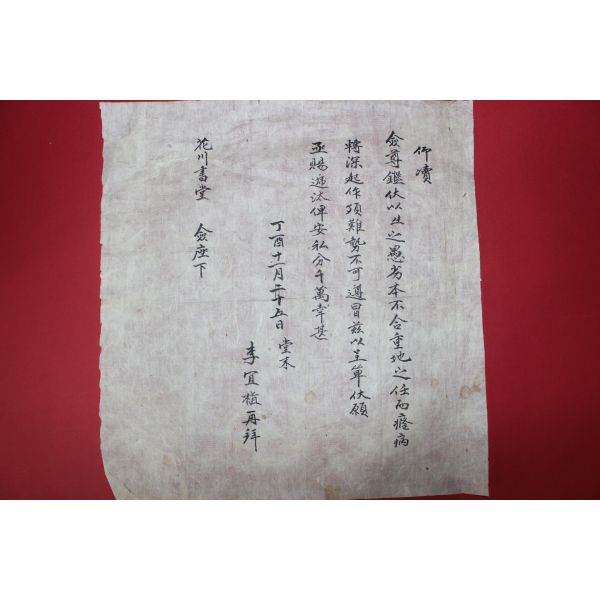 仰凟
僉尊鑑伏以生之愚劣本不合重地之任而癃病
轉深起作頗難勢不可遵冒玆以呈單伏願
亟賜遞汰俾安私分千萬幸甚
丁酉十一月二十五日 堂末
李宜 再拜
花川書堂 僉座下